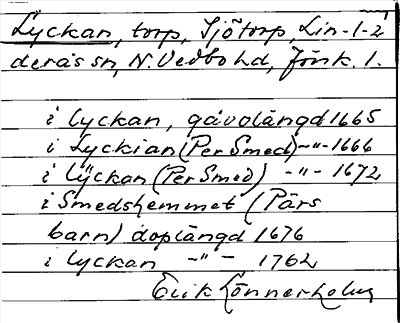 Lyckan, torp, Sjötorp, Lin-1-2
deräs sn, N. Vedbo hd, Jönk. l.
i lyckan, gåvolängd 1665
i Lyckian (Per Smed) -"- 1666
i lÿckan (Per Smed) -"- 1672
i Smedshemmet (Pärs
barn) doplängd 1676
i lyckan -"- - 1762
Erik Lönnerholm